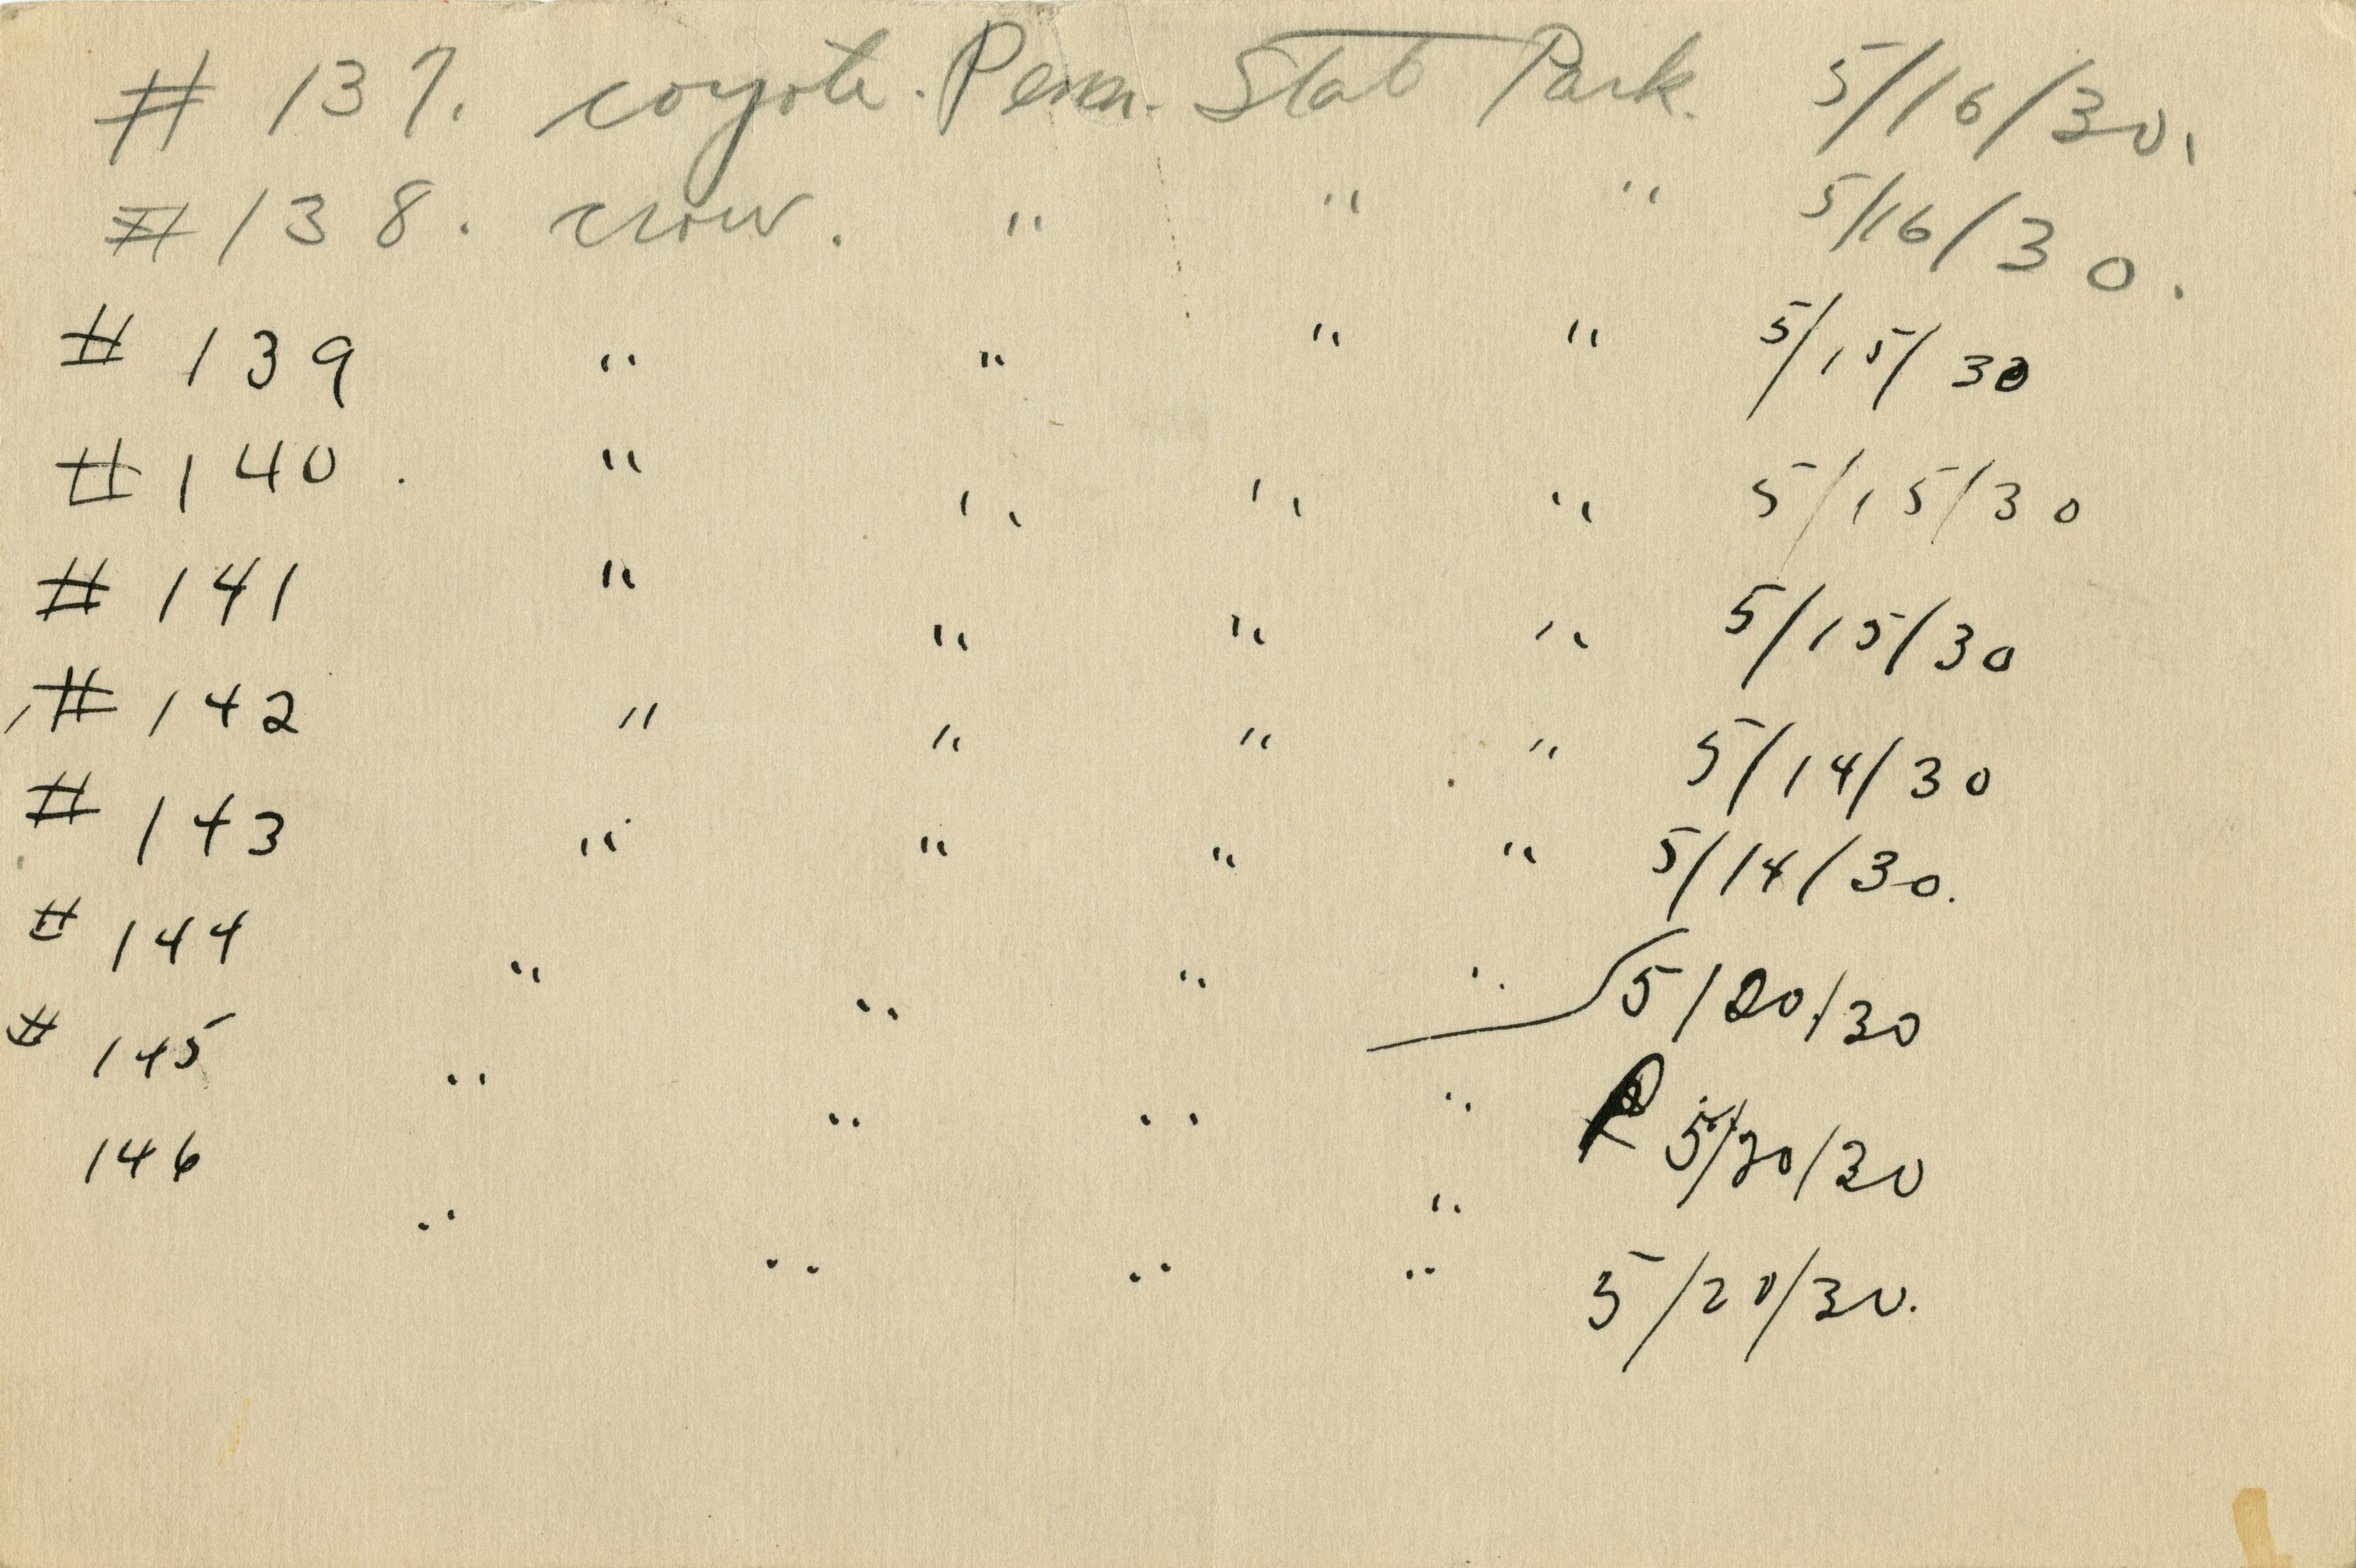 # 137. coyote. Penn. State Park. 5/16/30.
# 138. crow. " " " 5/16/30.
# 139 " " " " 5/15/30
# 140. " " " " 5/15/30
# 141 " " " " 5/15/30
# 142 " " " " 5/14/30
# 143 " " " " 5/14/30.
# 144 " " " " 5/20/30
# 145 " " " " 5/20/30
146 " " " " 5/20/30.